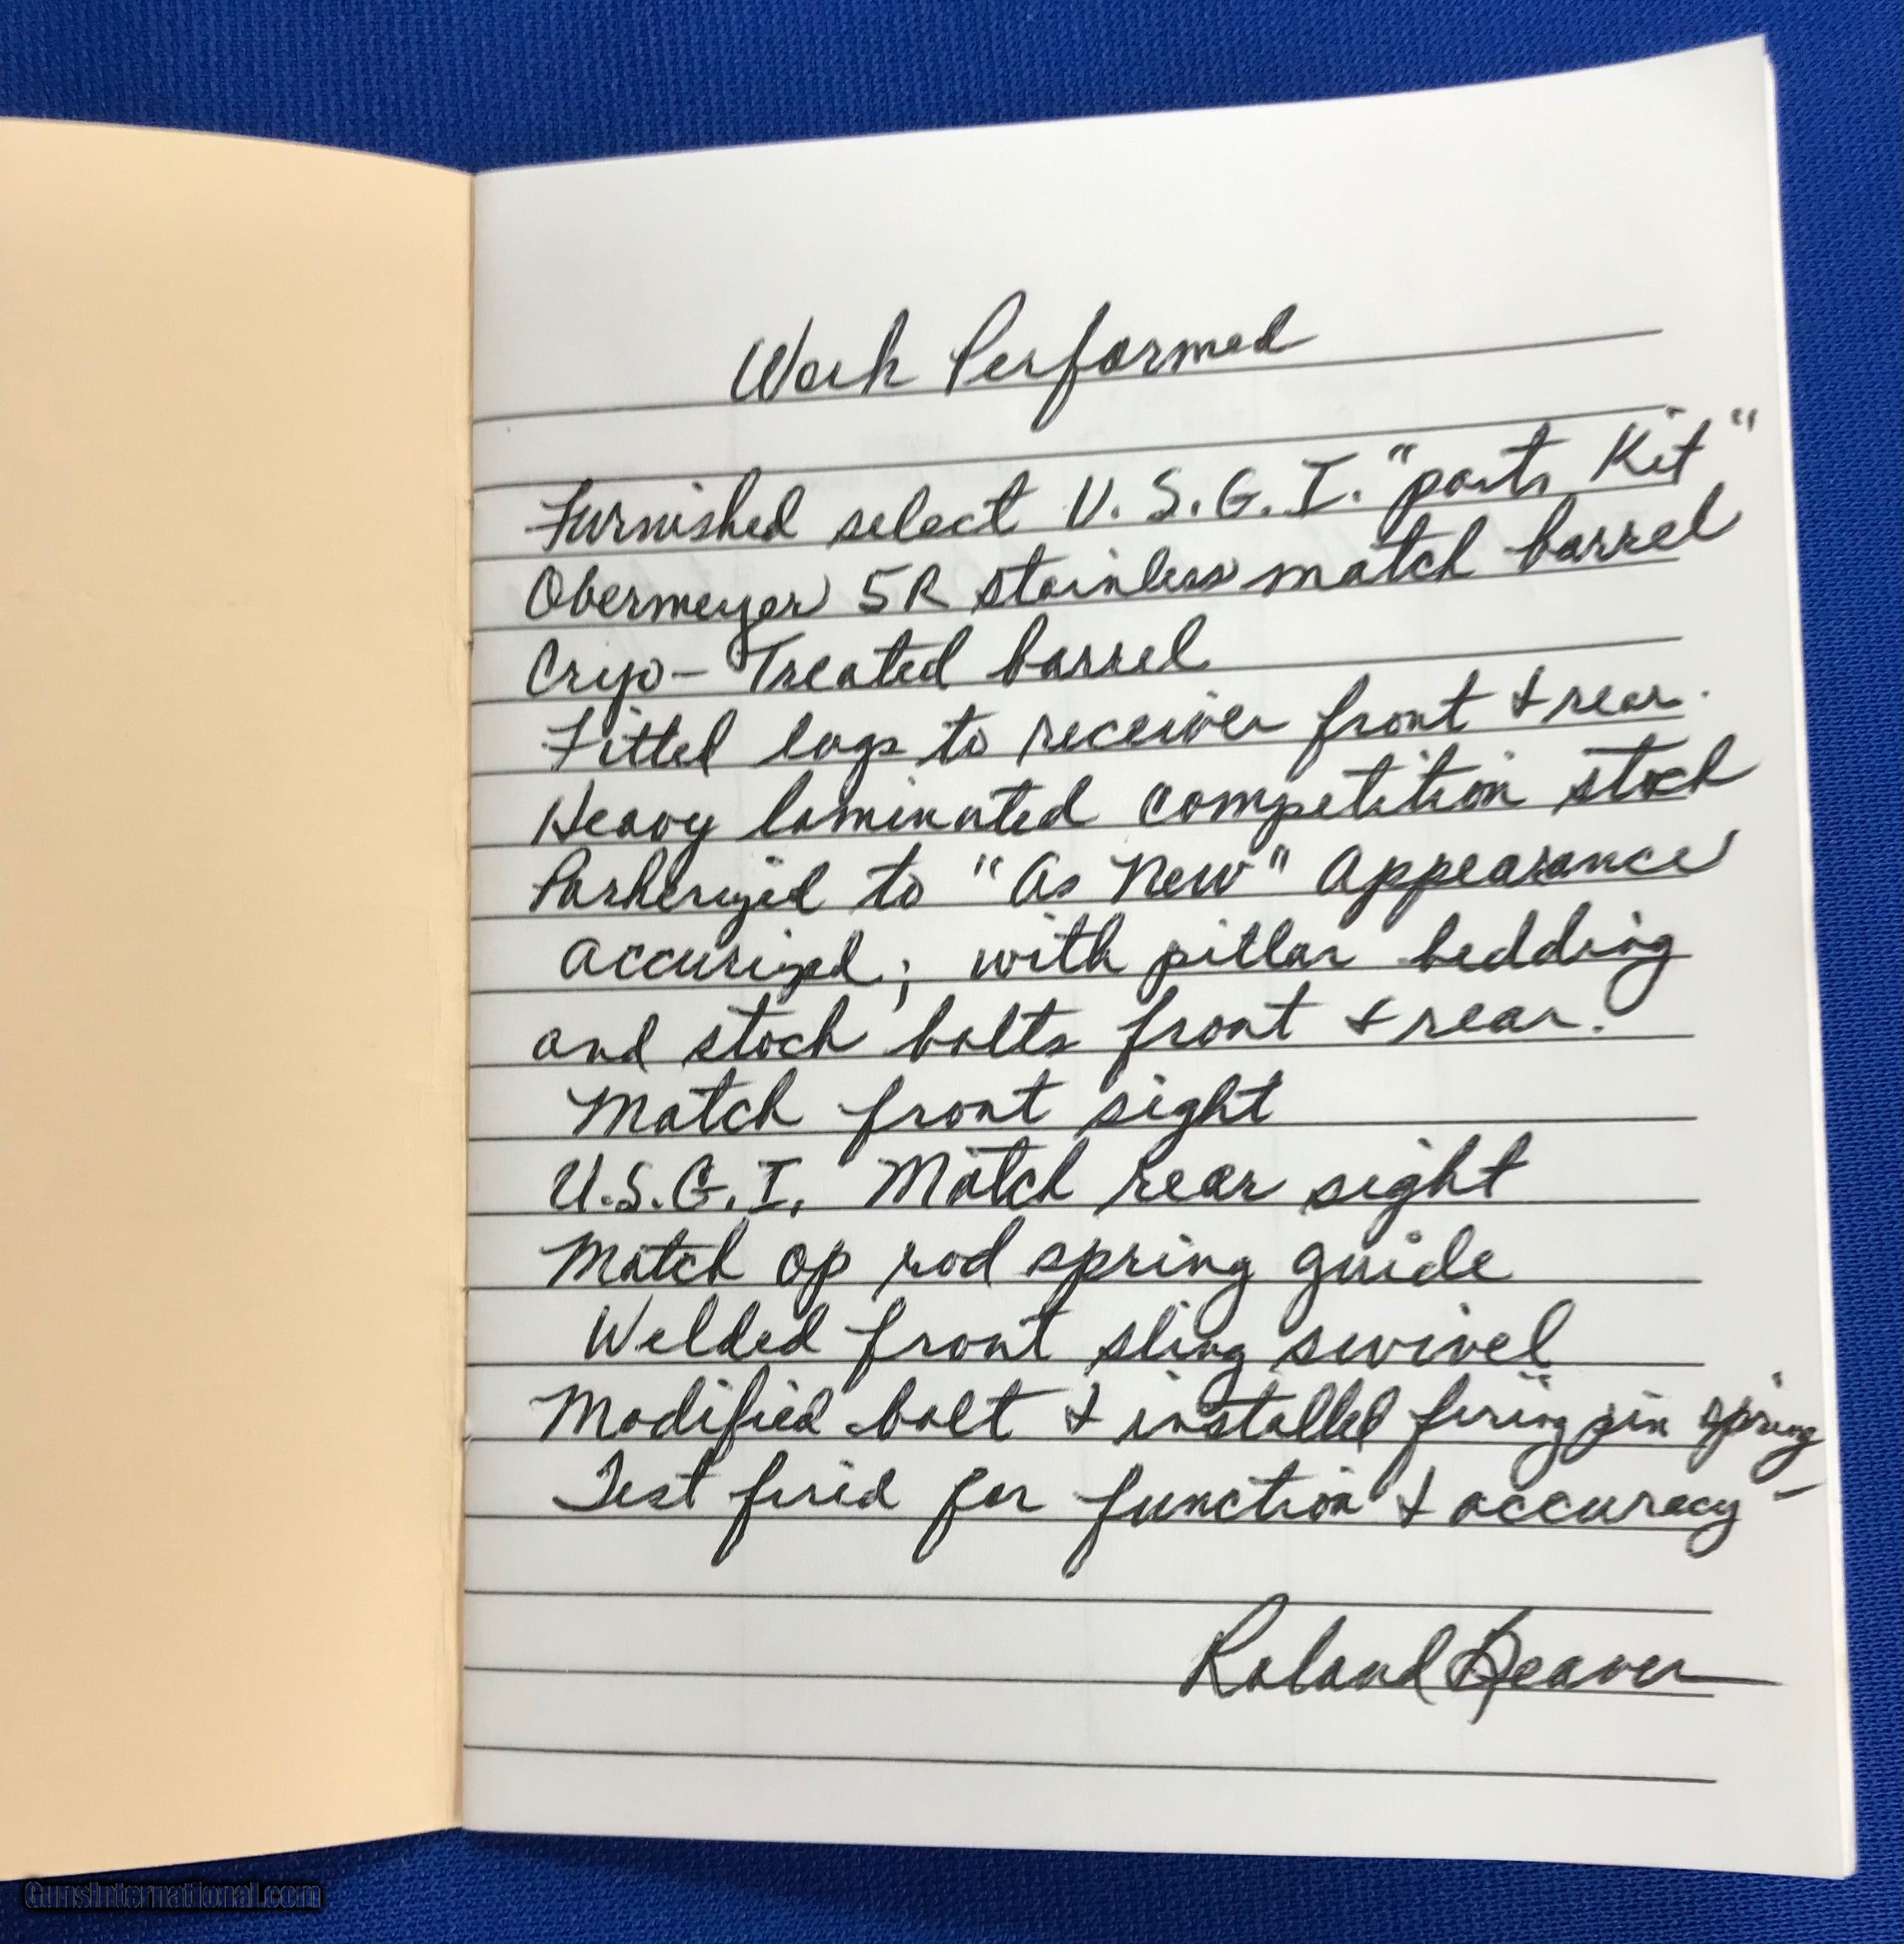 Work Performed
Furnished select U.S.G.I. "parts Kit"
Obermeyer 5R stainless match barrel
Cryo-Treated barrel
Fitted lugs to receiver front & rear.
Heavy laminated competition stock
Parkerized to "As New" Appearance
accurized; with pillar bedding
and stock bolts front & rear.
Match front sight
U.S.G.I. Match rear sight
Match op rod spring guide
Welded front sling swivel
Modified bolt & installed firing pin spring
Test fired for function & accuracy-
Roland Beaver
GunsInternational.com